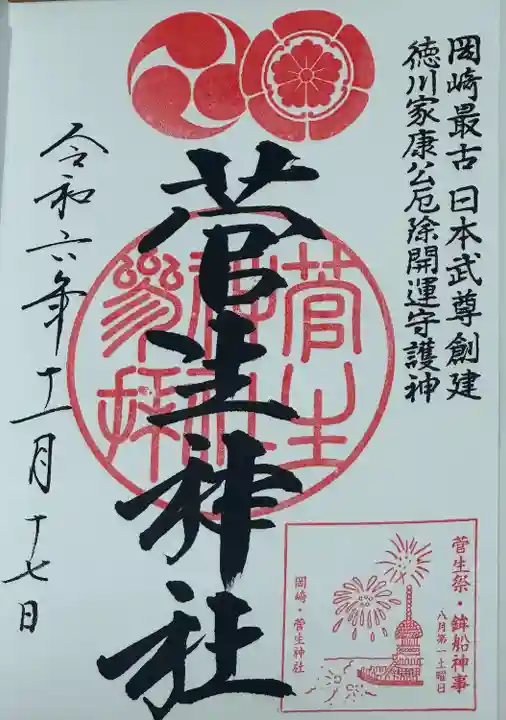 岡崎最古 日本武尊創建
徳川家康公厄除開運守護神
菅生神社
菅生神社参拝
令和六年十一月十七日
菅生祭・鉾船神事
八月第一土曜日
岡崎・菅生神社